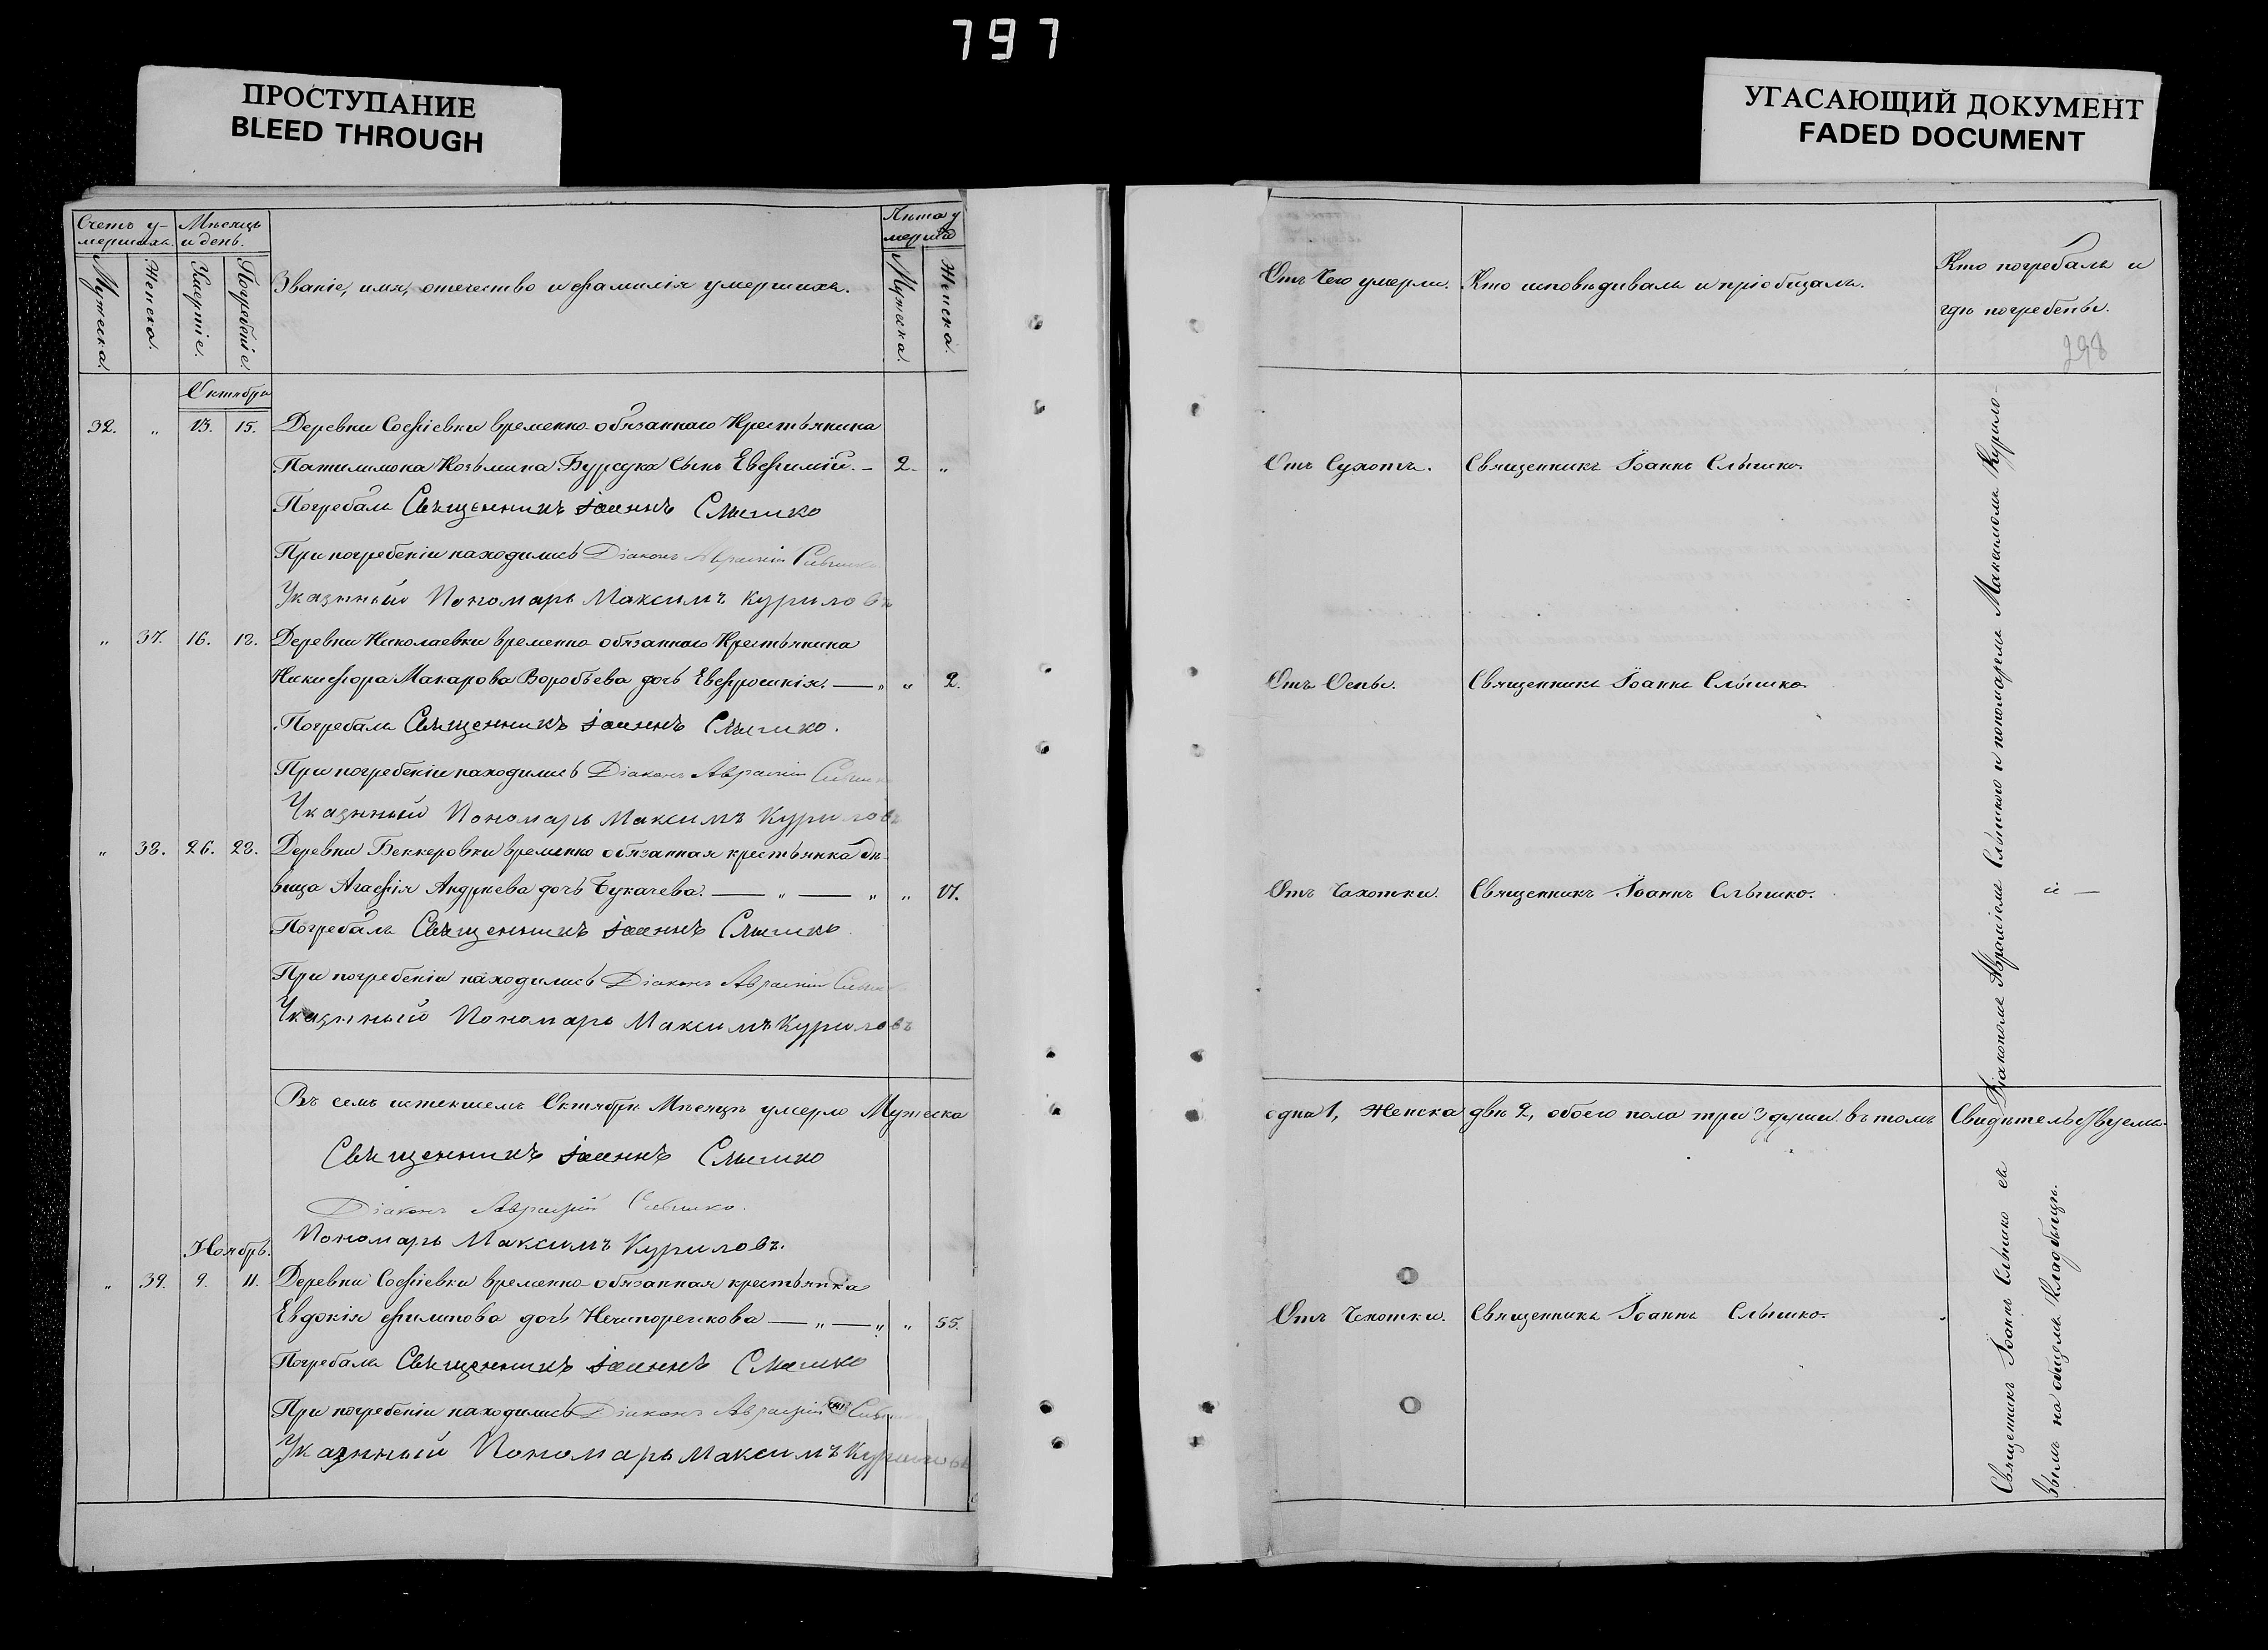 797
ПРОСТУПАНИЕ
BLEED THROUGH
УГАСАЮЩИЙ ДОКУМЕНТ
FADED DOCUMENT
Счетъ у-
мершихъ.
Мѣсяцъ
и день.
Мужеска.
Женска.
Умертіе.
Погребеніе.
Званіе, имя, отечество и фамилія умершихъ.
Лѣта у
мерша
Мужска.
Женска.
Октябрь
32. „ 13. 15. Деревни Софіевки временно-обязаннаго Крестьянина
Пателимона Козьмина Бурсука Сынъ Евфимій. – 2. „
Погребалъ Священникъ Іоаннъ Слышко
При погребеніи находились Діаконъ Авраамій Слышко
Указнный Пономарь Максимъ Куриловъ
„ 37. 16. 18. Деревни Николаевки временно обязаннаго Крестьянина
Никифора Макарова Воробьева дочь Евфросинія. — „ „ 2.
Погребалъ Священникъ Іоаннъ Слышко.
При погребеніи находились Діаконъ Авраамій Слышко
Указнный Пономарь Максимъ Куриловъ
„ 38. 26. 28. Деревни Беккеровки временно обязанная крестьянка дѣ-
вица Агафія Андреева дочь Букачева. — „ — „ „ 17.
Погребалъ Священникъ Іоаннъ Слышко
При погребеніи находились Діаконъ Авраамій Слышко
Указнный Пономарь Максимъ Куриловъ
Въ семъ истекшемъ Октябрѣ Мѣсяцѣ умерло Мужеска
Священникъ Іоаннъ Слышко
Діаконъ Авраамій Слышко.
Пономарь Максимъ Куриловъ.
Ноябрь.
„ 39. 9. 11. Деревни Софіевки временно-обязанная крестьянка
Евдокія Филипова дочь Нечипоренкова — „ — „ „ 55.
Погребалъ Священникъ Іоаннъ Слышко
При погребеніи находились Діаконъ Авраамій Слышко
Указнный Пономарь Максимъ Куриловъ
Отъ чего умерли.
Кто исповѣдывалъ и пріобщалъ.
Кто погребалъ и
гдѣ погребены.
298
Отъ Сухотъ. Священникъ Іоаннъ Слышко.
Отъ Оспы. Священникъ Іоаннъ Слышко.
Отъ Чахотки. Священникъ Іоаннъ Слышко.
одна 1, Женска двѣ 2, обоего пола три 3 души. въ томъ Свидѣтельствуемъ.
Отъ Чахотки. Священникъ Іоаннъ Слышко.
Священникъ Іоаннъ Слышко съ Діакономъ Авраміемъ Слышкого и пономаремъ Максимомъ Курило-
вымъ на общемъ Кладбищѣ.